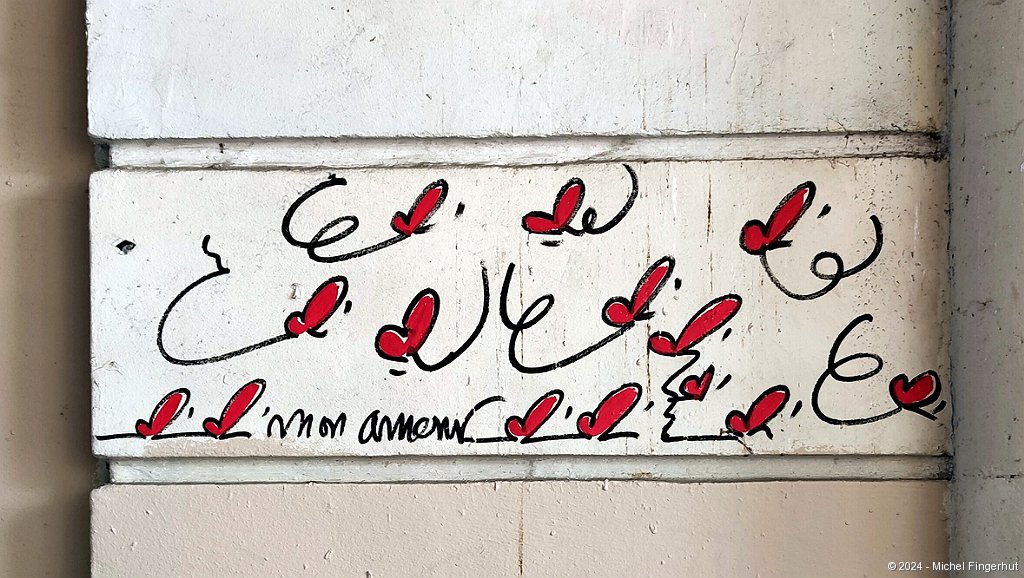 mon amour
© 2024 - Michel Fingerhut